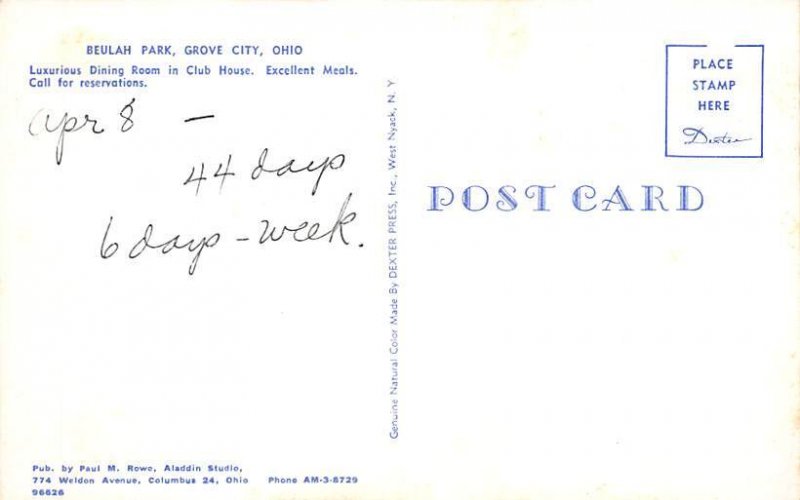 BEULAH PARK, GROVE CITY, OHIO
Luxurious Dining Room in Club House. Excellent Meals.
Call for reservations.
Apr 8 –
44 days
6 days – week.
Pub. by Paul M. Rowe, Aladdin Studio,
774 Weldon Avenue, Columbus 24, Ohio Phone AM-3-8729
96626
Genuine Natural Color Made By DEXTER PRESS, Inc., West Nyack, N. Y
PLACE
STAMP
HERE
Dexter
POST CARD